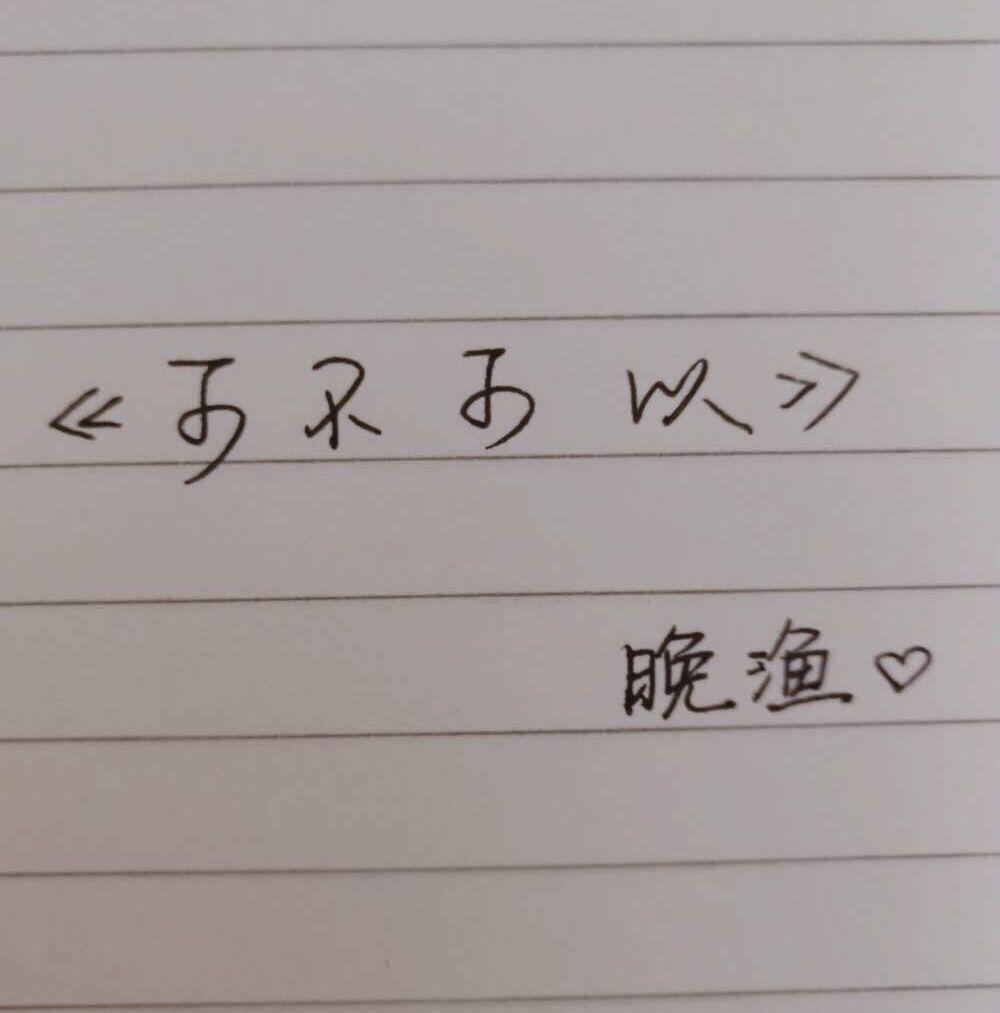 《可不可以》
晚渔♡